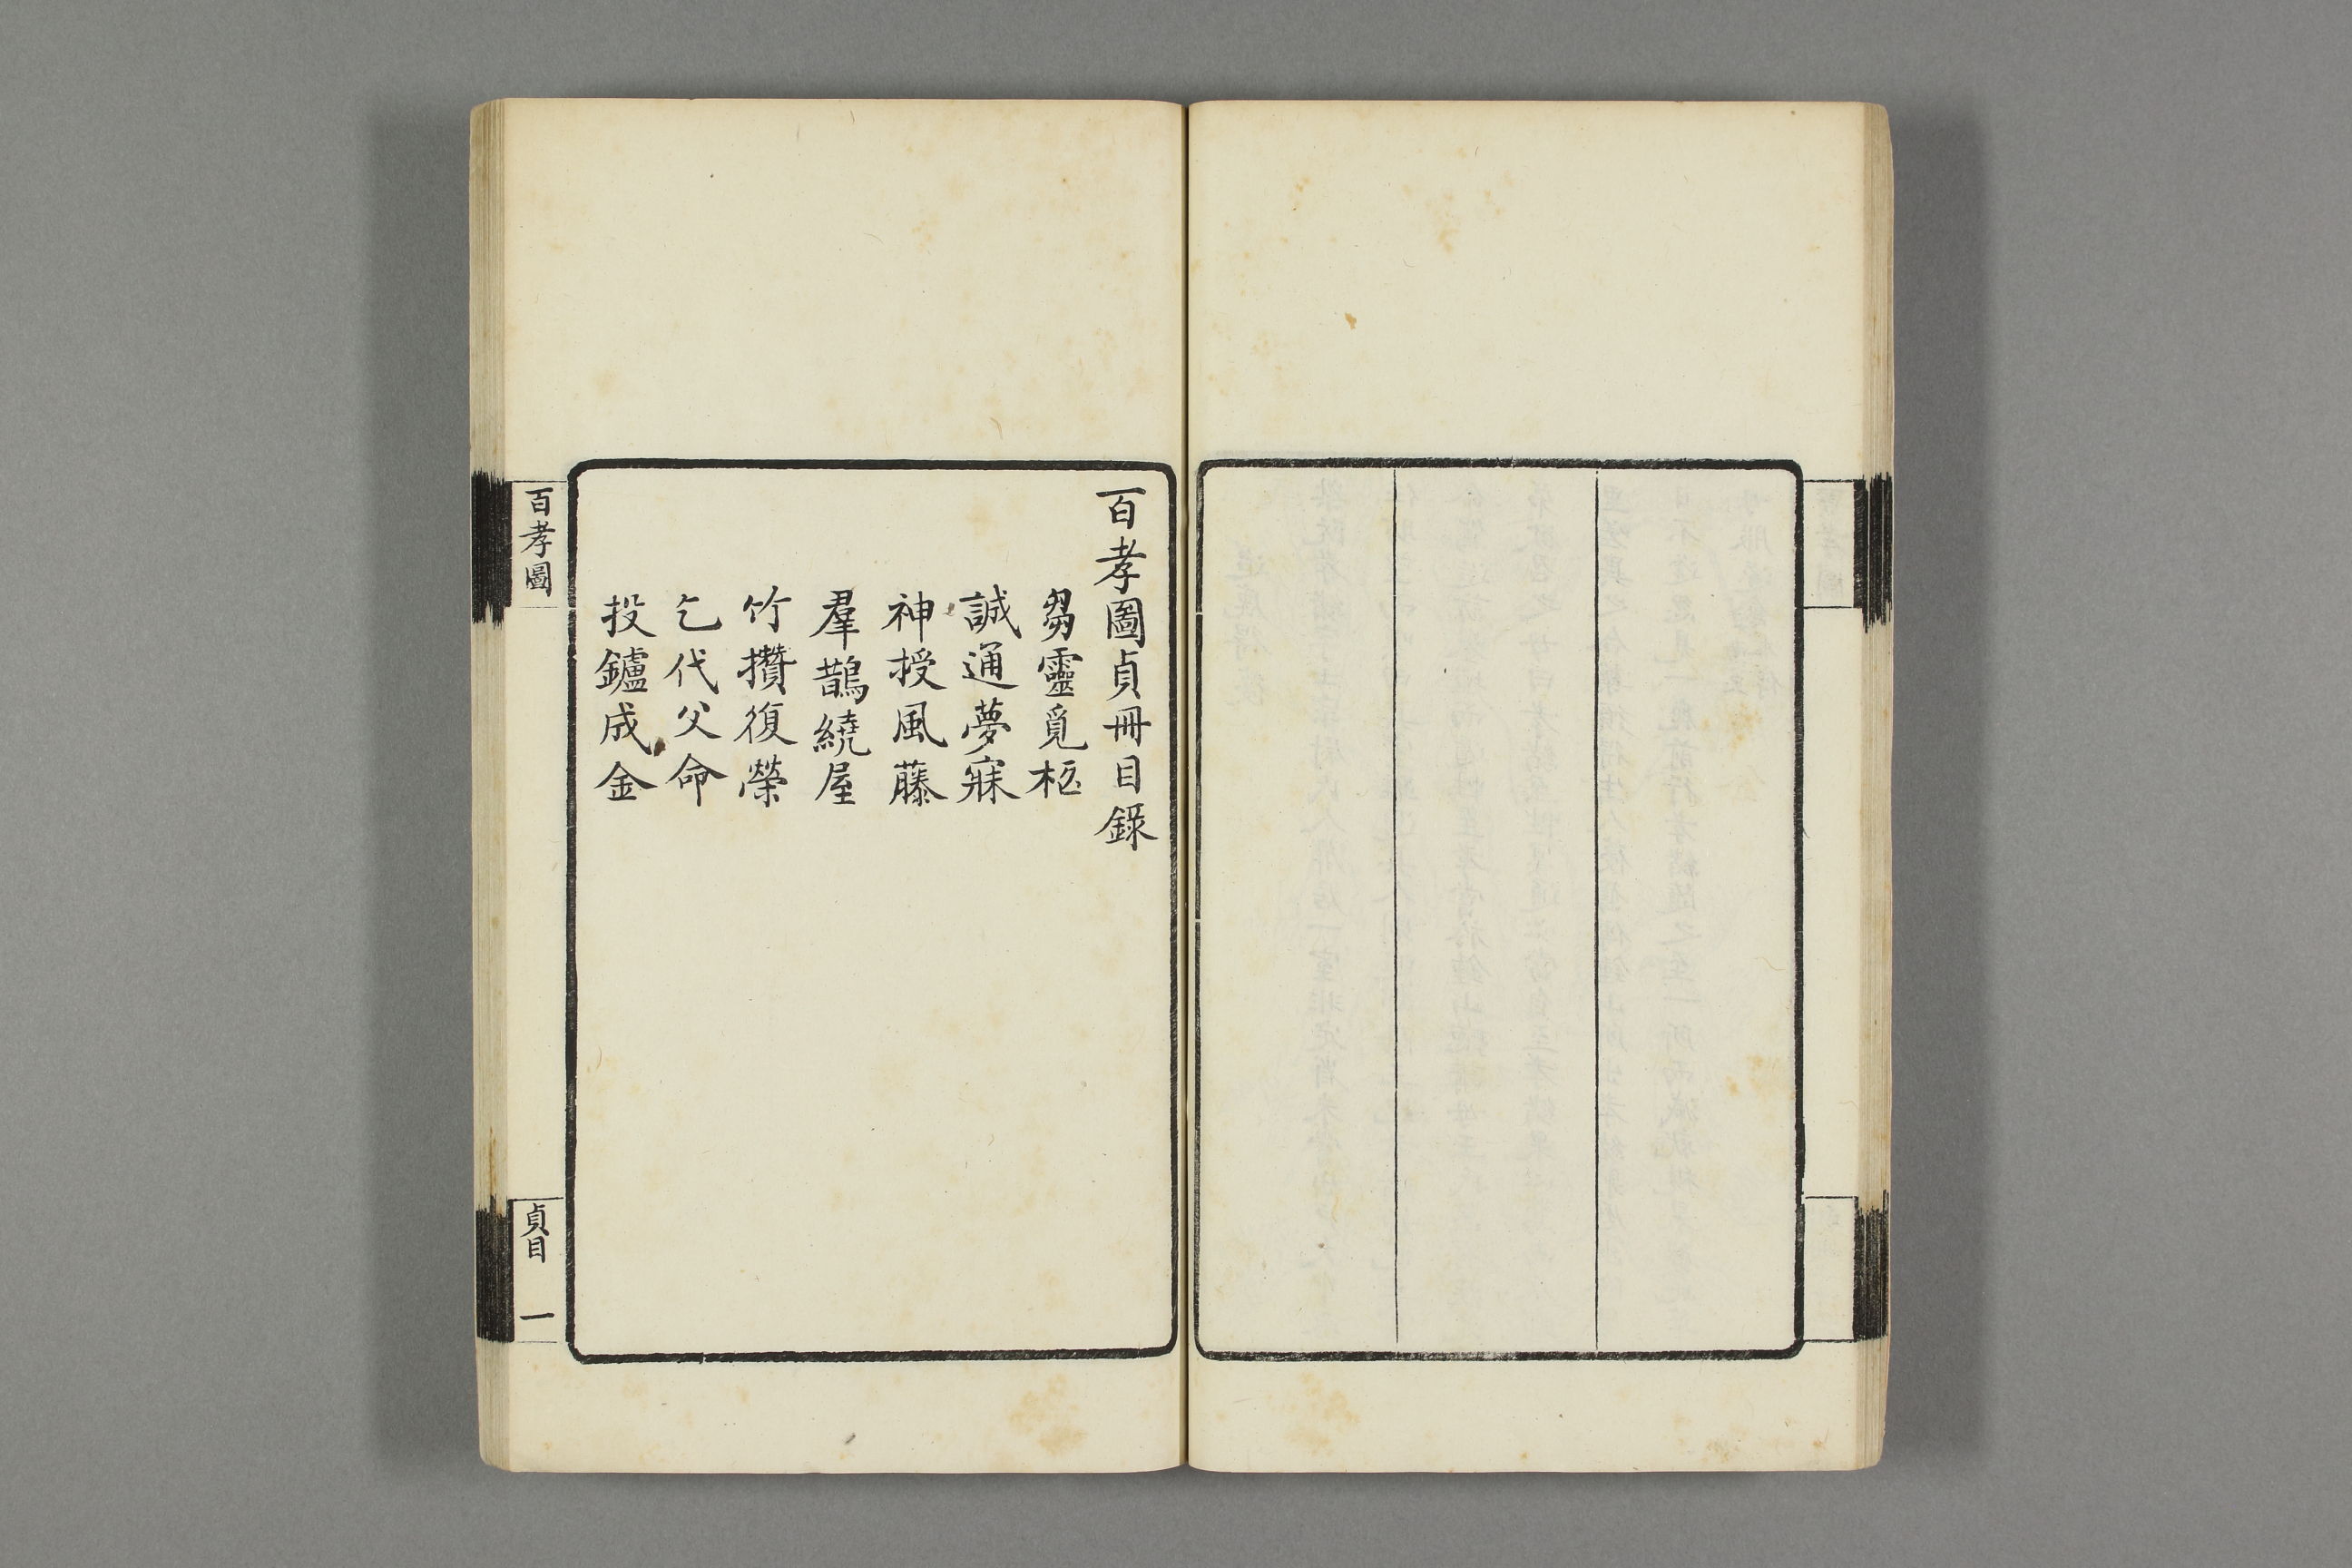 百孝圖貞冊目錄
芻靈覓柩
誠通夢寐
神授風藤
羣鵲繞屋
竹攢復榮
乞代父命
投鑪成金
百孝圖
貞目
一